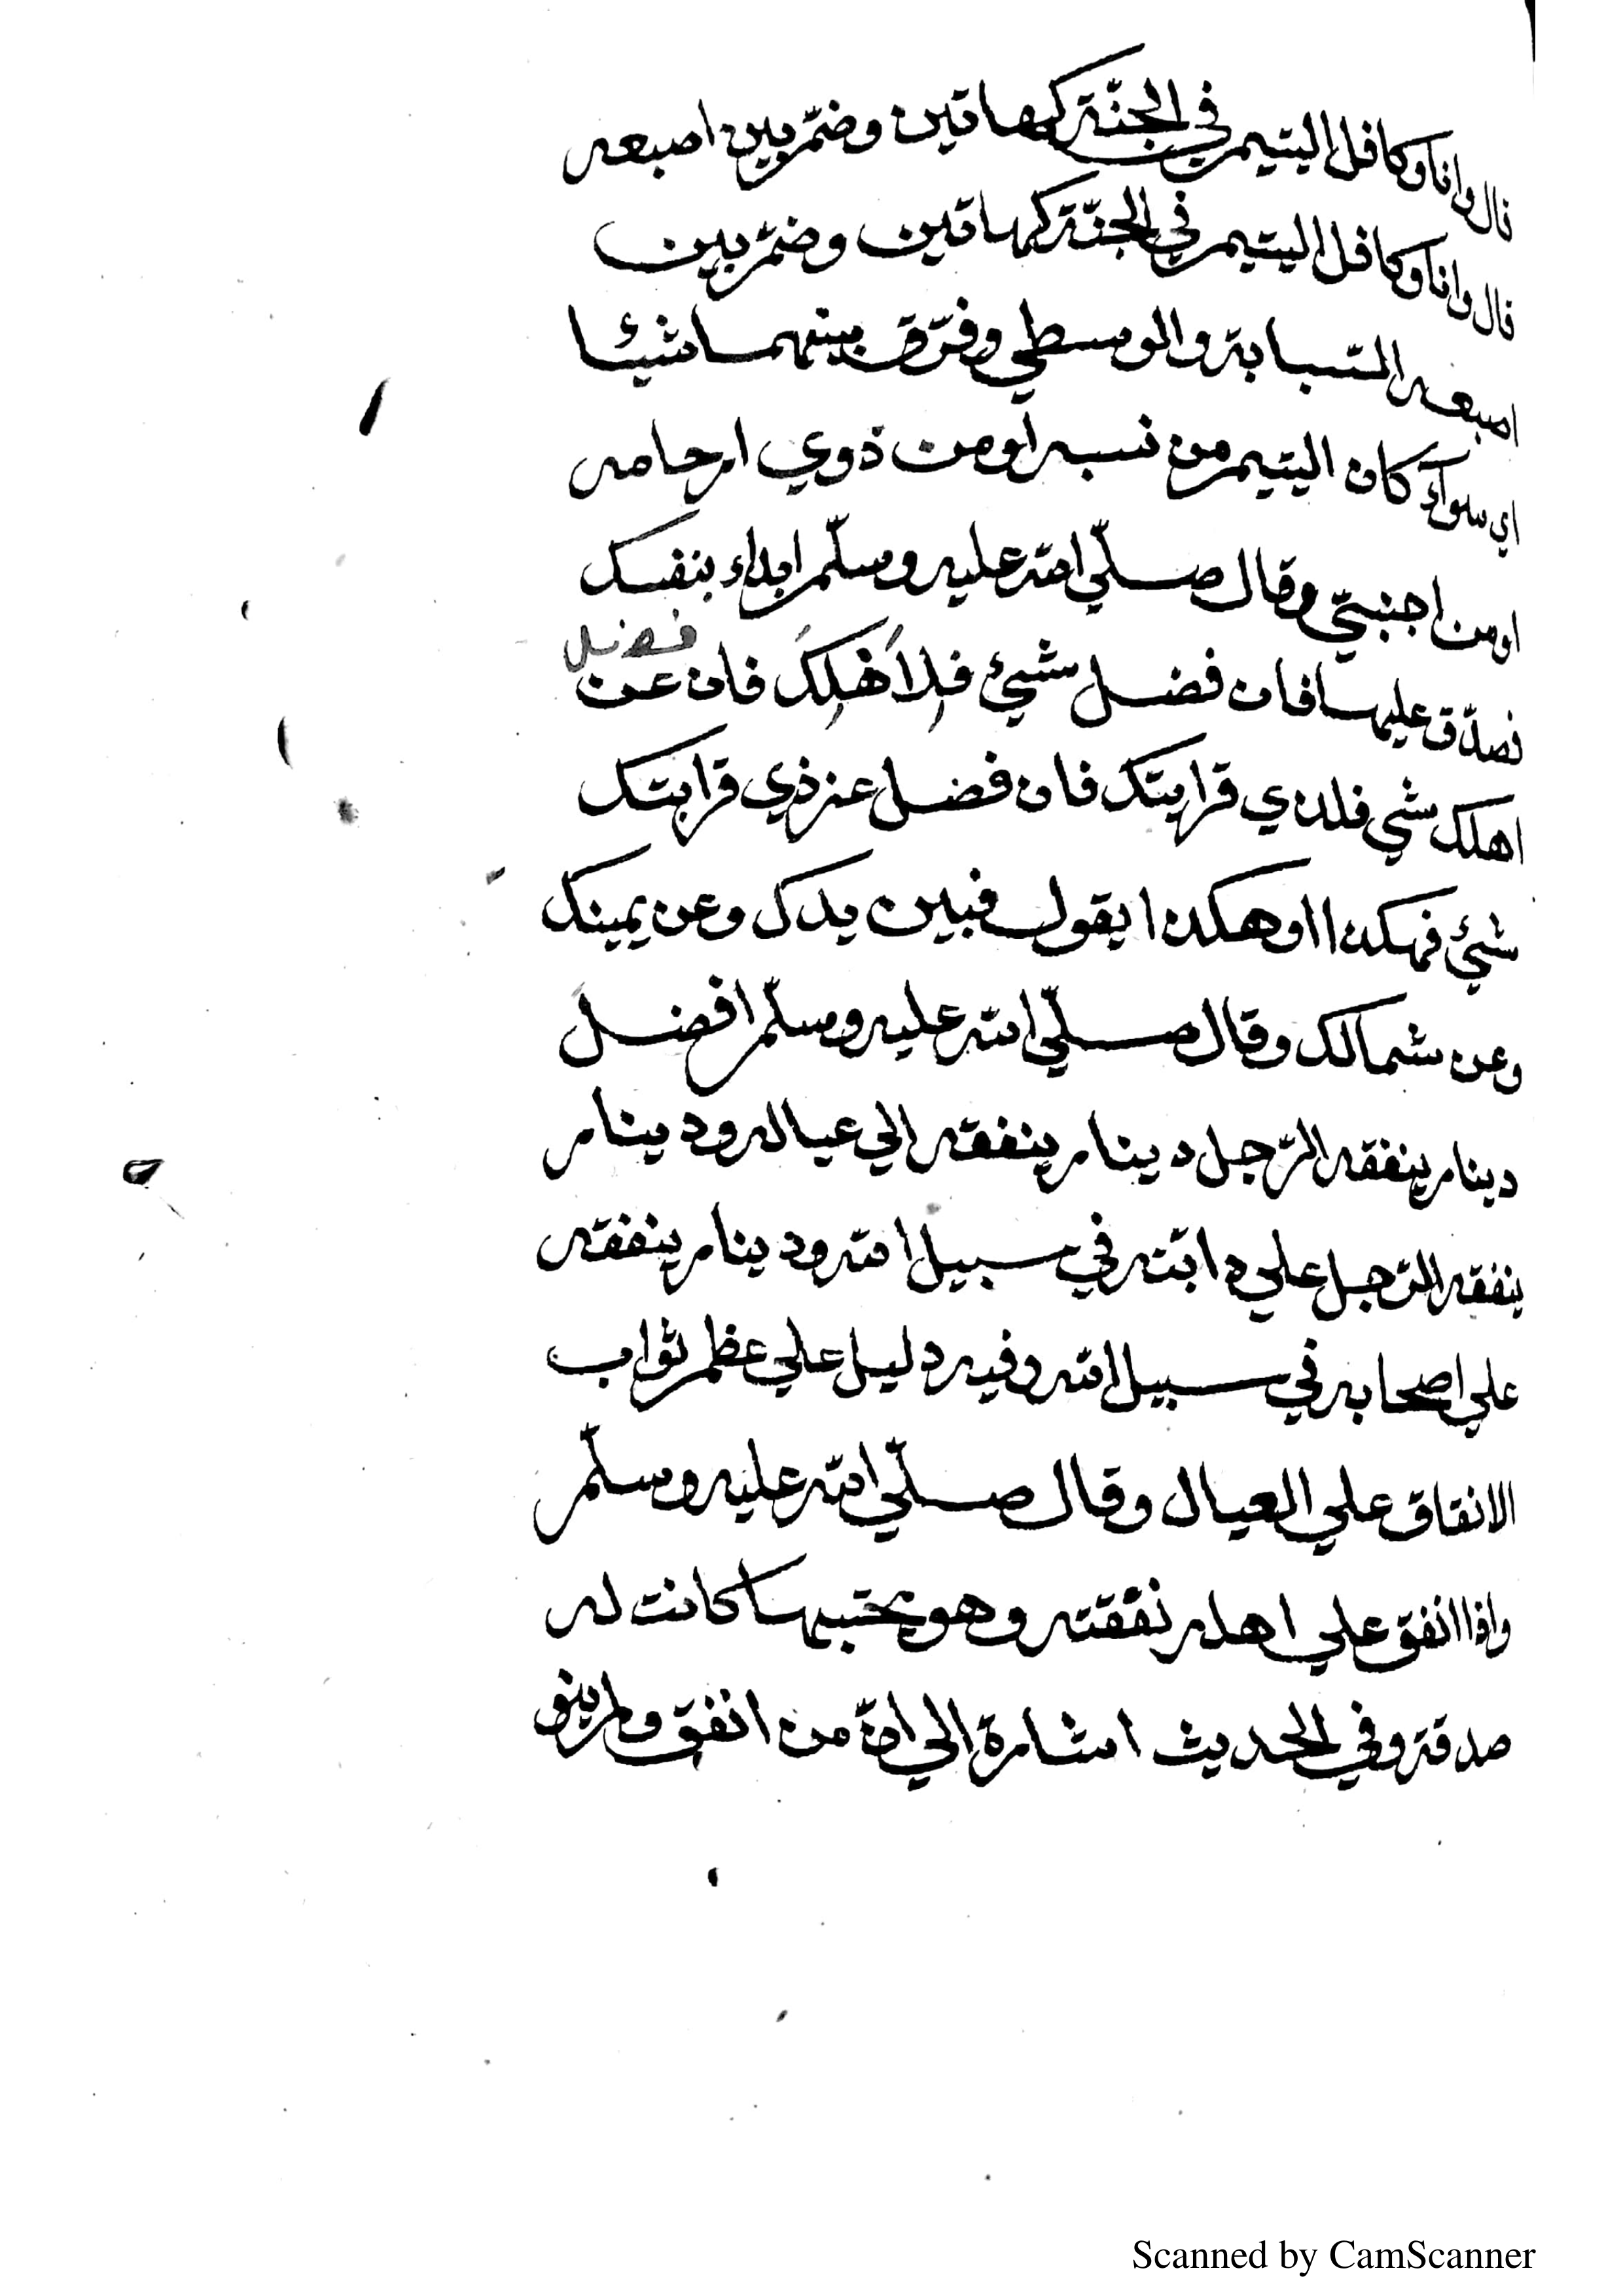 قال وانا وكافل اليتيم في الجنّة كهاتين وضمّ بين اصبعه
قال وانا وكافل اليتيم في الجنّة كهاتين وضمّ بين
اصبعه السّبابة والوسطي وفرّق بينهما شيئا
اي سوآء كان اليتيم من نسبه او من ذوي ارحامه
او من اجنبيّ وقال صلّي الله عليه وسلّم ابداء بنفسك
فصدّق عليها فان فضل شيئ فلِاَهْلِكَ فان عن
فضل
اهلك شي فلذي قرابتك فان فضل عن ذي قرابتك
شيئ فهكذا او هكذا يقول فبين يدك وعن يمينك
وعن شمالك وقال صلّي الله عليه وسلّم افضل
دينار ينفقه الرّجل دينار ينفقه الي عياله ودينار
ينفقه الرّجل علي دابّته في سبيل الله ودينار ينفقه
علي اصحابه في سبيل الله وفيه دليل علي عظم ثواب
الانفاق علي العيال وقال صلّي الله عليه وسلّم
واذا انفق علي اهله نفقته وهو يحتبسها كانت له
صدقة وفي الحديث اشارة الي انّ من انفق ولم ينو
Scanned by CamScanner